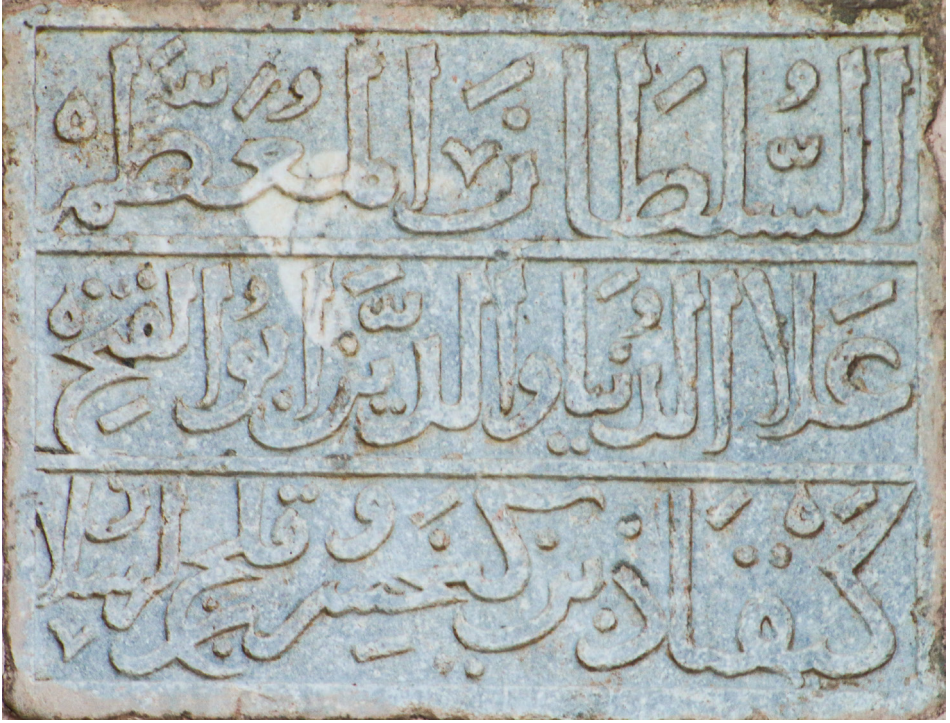 السُّلطَانُ المُعَظَّم
عَلَا الدُّنيَا وَالدِّينِ اَبُو الفَتْحِ
كَيقُبَاذ بن كَيخُسرَو بن قِلج ارسلان